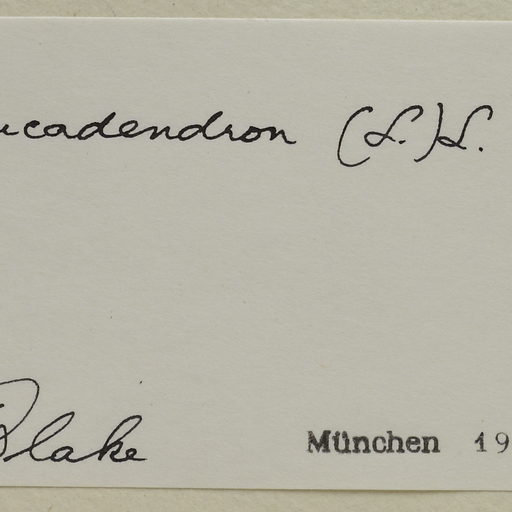 ucadendron (L.) L.
Blake
München 19